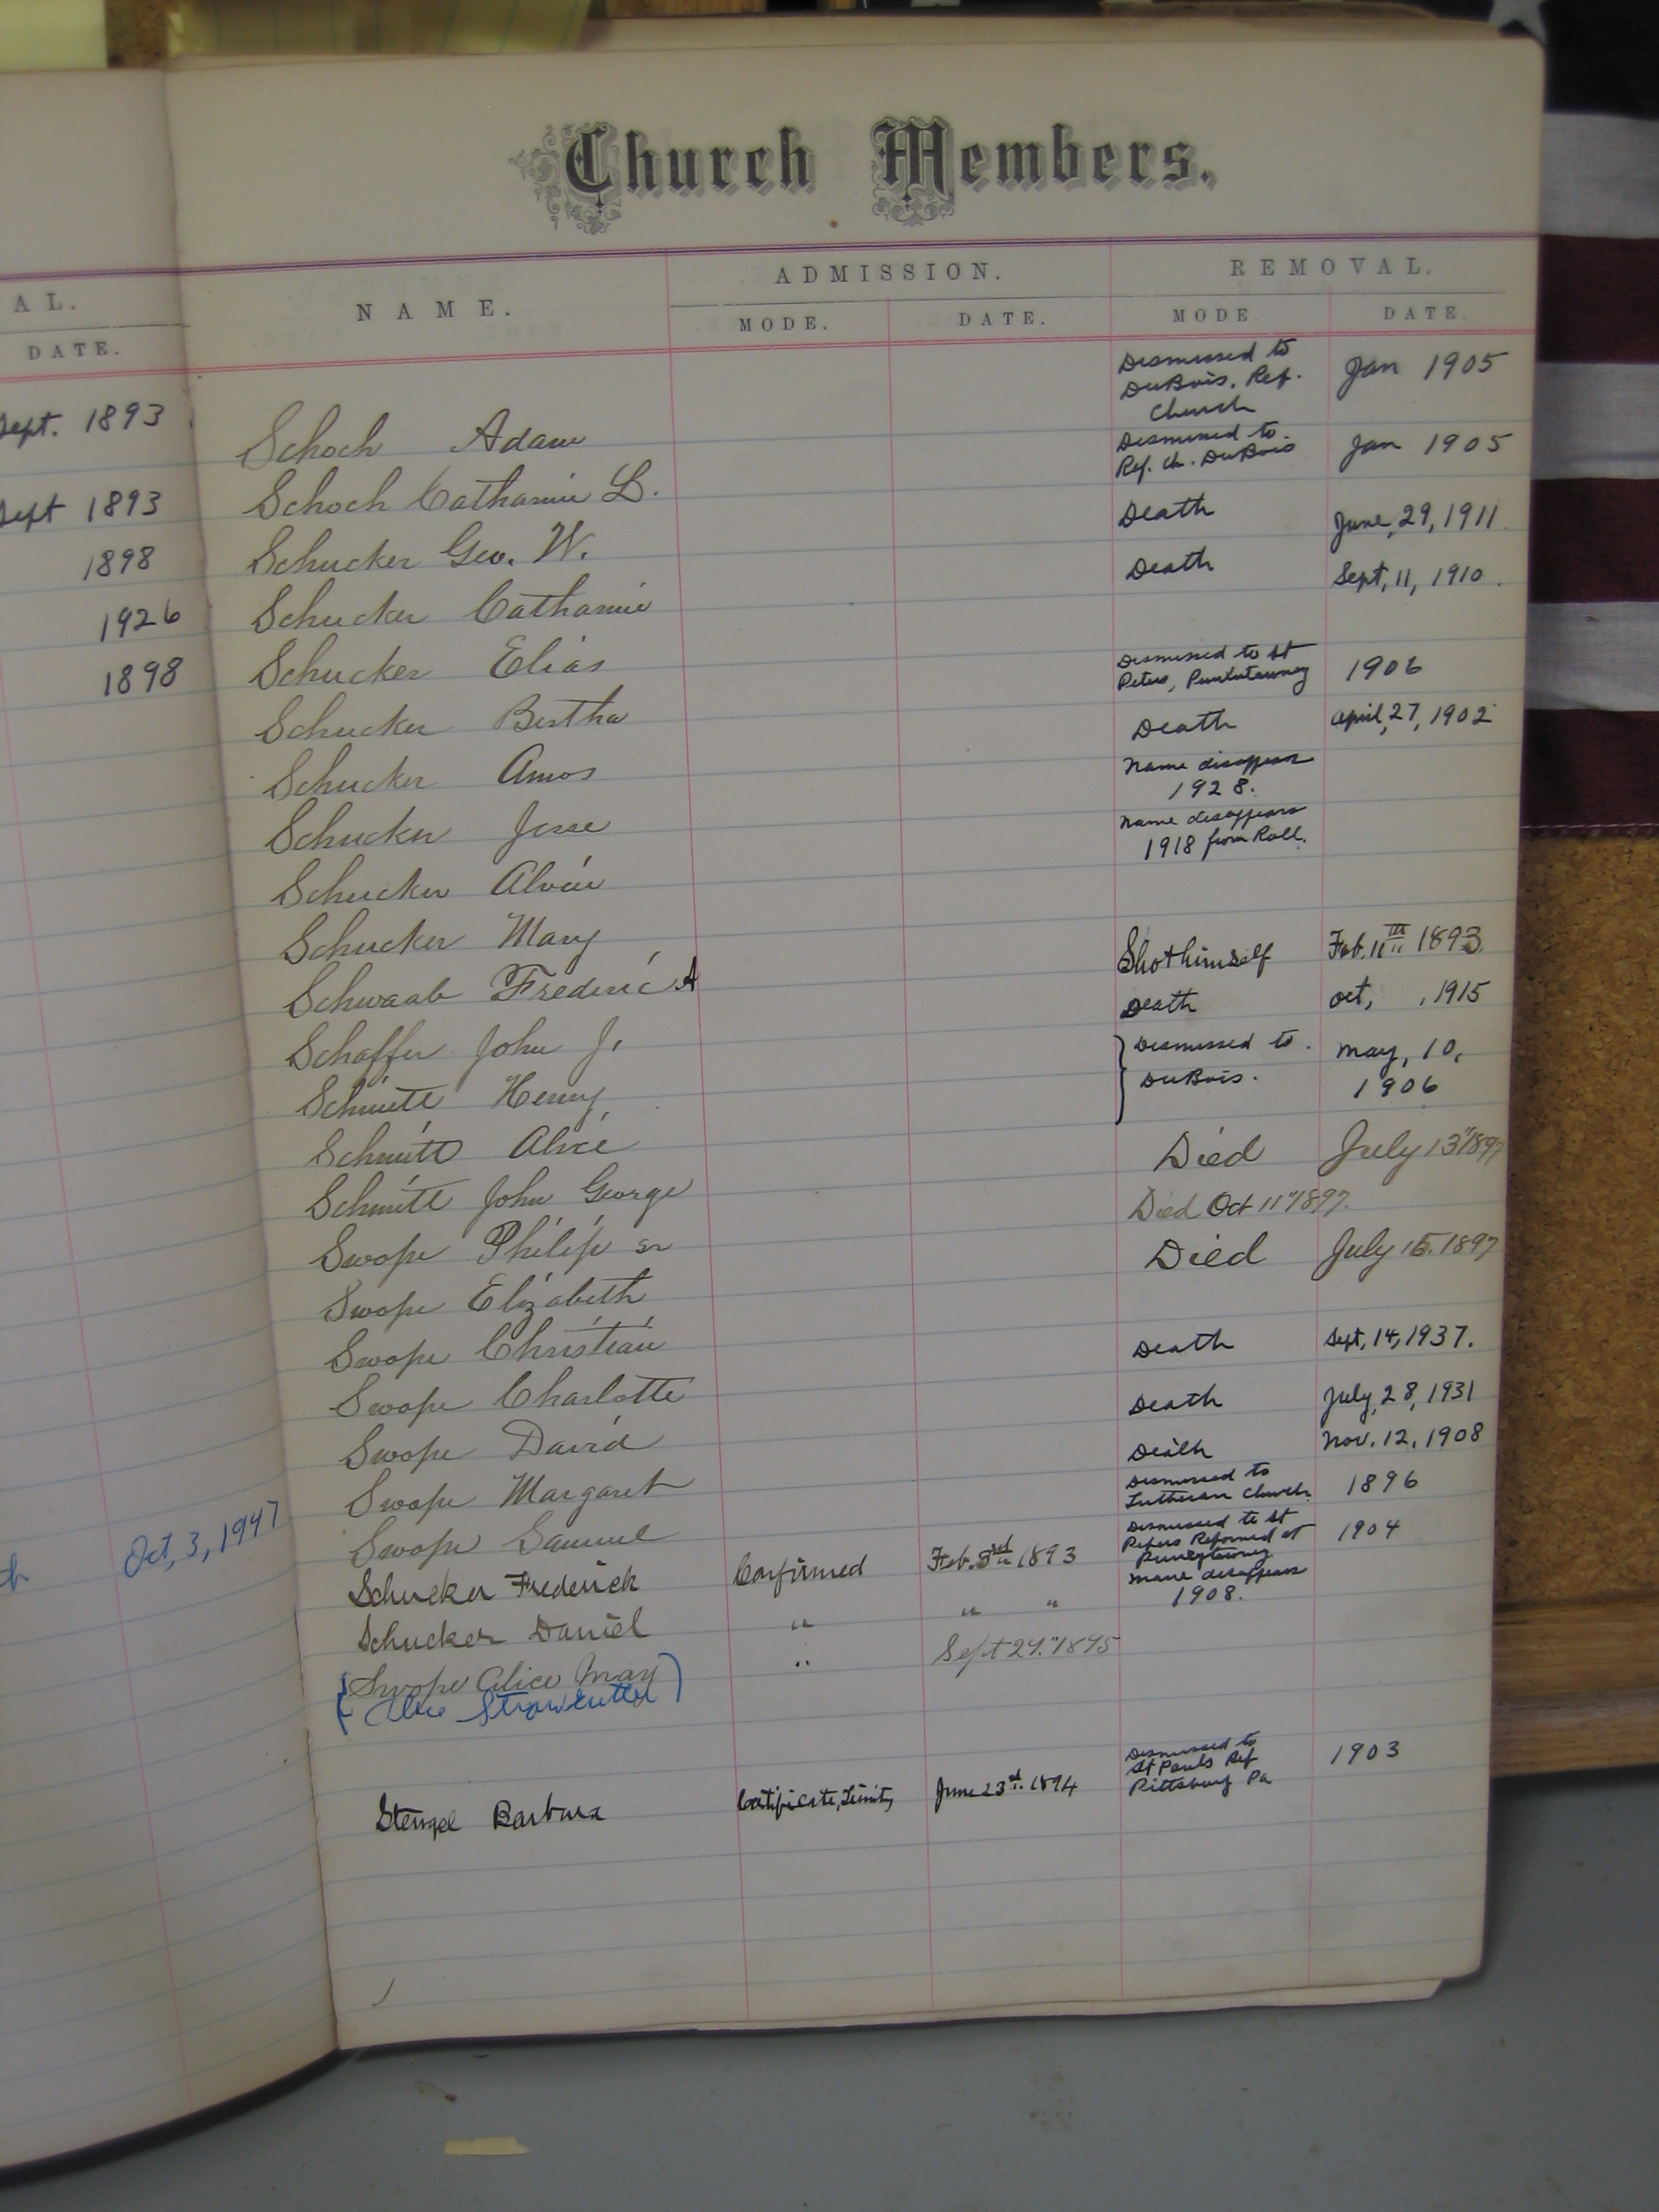 Church Members.
AL.
DATE.
NAME.
ADMISSION.
REMOVAL.
MODE.
DATE.
MODE
DATE.
Sept. 1893
Sept 1893
1898
1926
1898
Oct, 3, 1947
Dismissed to
DuBois, Ref.
Church
Jan 1905
Schoch Adam
Dismissed to
Ref. Ch. DuBois
Jan 1905
Schoch Catharine L.
Death
June, 29, 1911.
Schucker Geo. W.
Death
Sept, 11, 1910.
Schucker Catharine
Schucker Elias
Dismissed to St
Peters, Punxutawney
1906
Schucker Bertha
Death
April, 27, 1902
Schucker Amos
Name disappears
1928.
Schucker Jesse
Name disappears
1918 from Roll.
Schucker Alvin
Schucker Mary
Shot himself
Feb. 11th 1893.
Schwaab Frederic A
Death
Oct, , 1915
Schaffer John J.
Dismissed to
DuBois.
May, 10,
1906
Schmitt Henry
Schmitt Alice
Died
July 13" 1897
Schmitt John George
Died Oct 11" 1897.
Swope Philip sr
Died
July 15. 1897
Swope Elizabeth
Swope Christian
Death
Sept, 14, 1937.
Swope Charlotte
Death
July, 28, 1931
Swope David
Death
Nov. 12, 1908
Swope Margaret
Dismissed to
Lutheran Church
1896
Swope Samuel
Dismissed to St
Peters Reformed at
1904
Schucker Frederick
Confirmed
Feb. 3rd 1893
Name disappears
1908.
Schucker Daniel
" " "
Swope Alice May
" Sept 29." 1895
(Alice
Stengel Barbara
Certificate, Trinity
June 23rd. 1894
Dismissed to
St Pauls Ref
Pittsburg Pa
1903